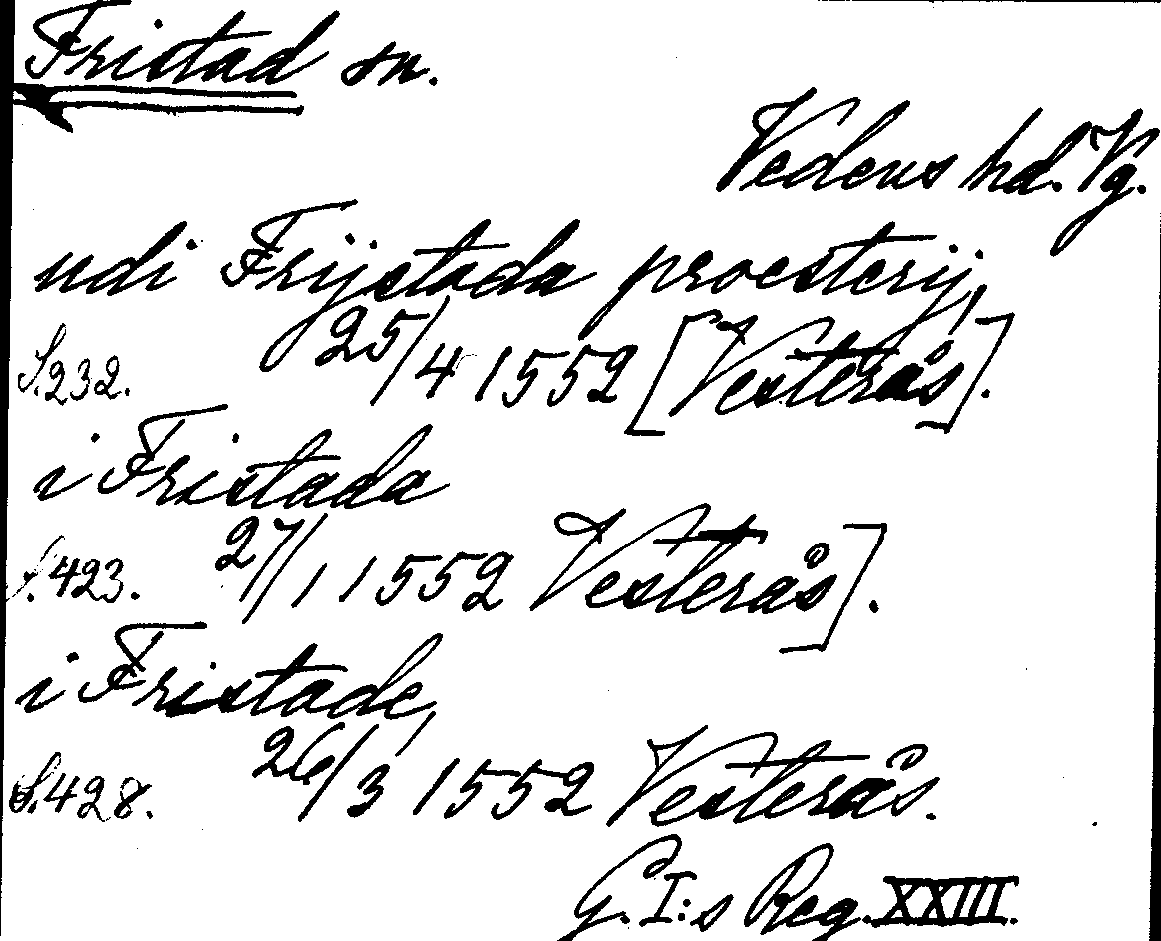 Fristad sn.
Vedens hd. Vg.
udi Frijstada proesterij,
S.232. 25/4 1552 [Vesterås].
i Fristada
S.423. 27/1 1552 Vesterås].
i Fristade,
S.428. 26/3 1552 Vesterås.
G.I:s Reg. XXIII.